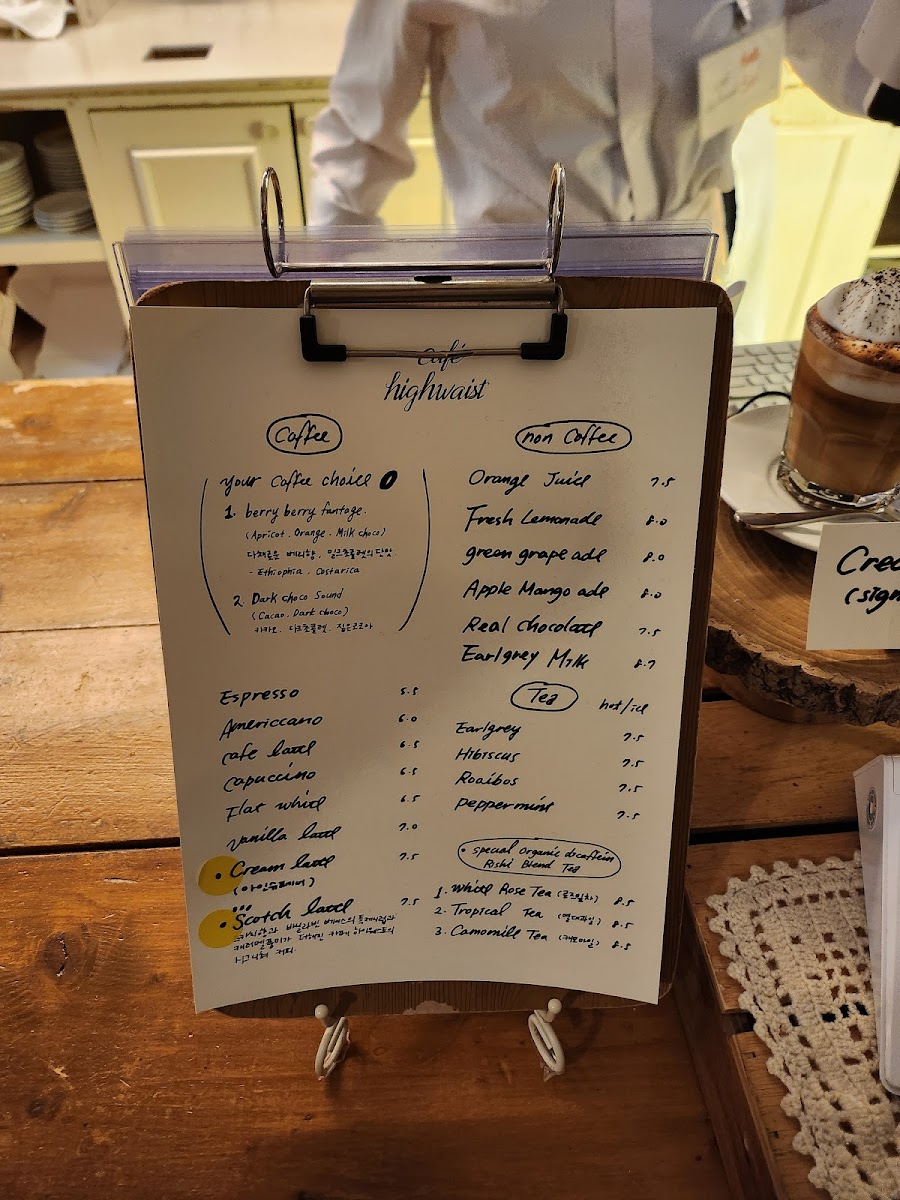 café
highwaist
Coffee
your Coffee choice
1. berry berry fantage.
(Apricot. Orange. Milk choco)
다채로운 베리향. 밀크초콜렛의 단맛
- Ethiophia. Costarica
2. Dark choco Sound
(Cacao. Dark choco)
카카오. 다크초콜렛. 짙은코코아
Espresso 5.5
Americcano 6.0
cafe latte 6.5
capuccino 6.5
Flat white 6.5
vanilla latte 7.0
• Cream latte 7.5
(아인슈페너)
• Scotch latte 7.5
스카치향과 바닐라빈 베이스의
캐러멜풍미가 더해진 카페 하이웨스트의
시그니처 커피.
non Coffee
Orange Juice 7.5
Fresh Lemonade 8.0
green grape ade 8.0
Apple Mango ade 8.0
Real Chocolate 7.5
Earlgrey Milk 8.7
Tea hot/ice
Earlgrey 7.5
Hibiscus 7.5
Rooibos 7.5
peppermint 7.5
• special organic decaffein
Rishi Blend Tea
1. White Rose Tea (로즈잎차) 8.5
2. Tropical Tea (열대과일) 8.5
3. Camomile Tea (캐모마일) 8.5
Crea
(sign